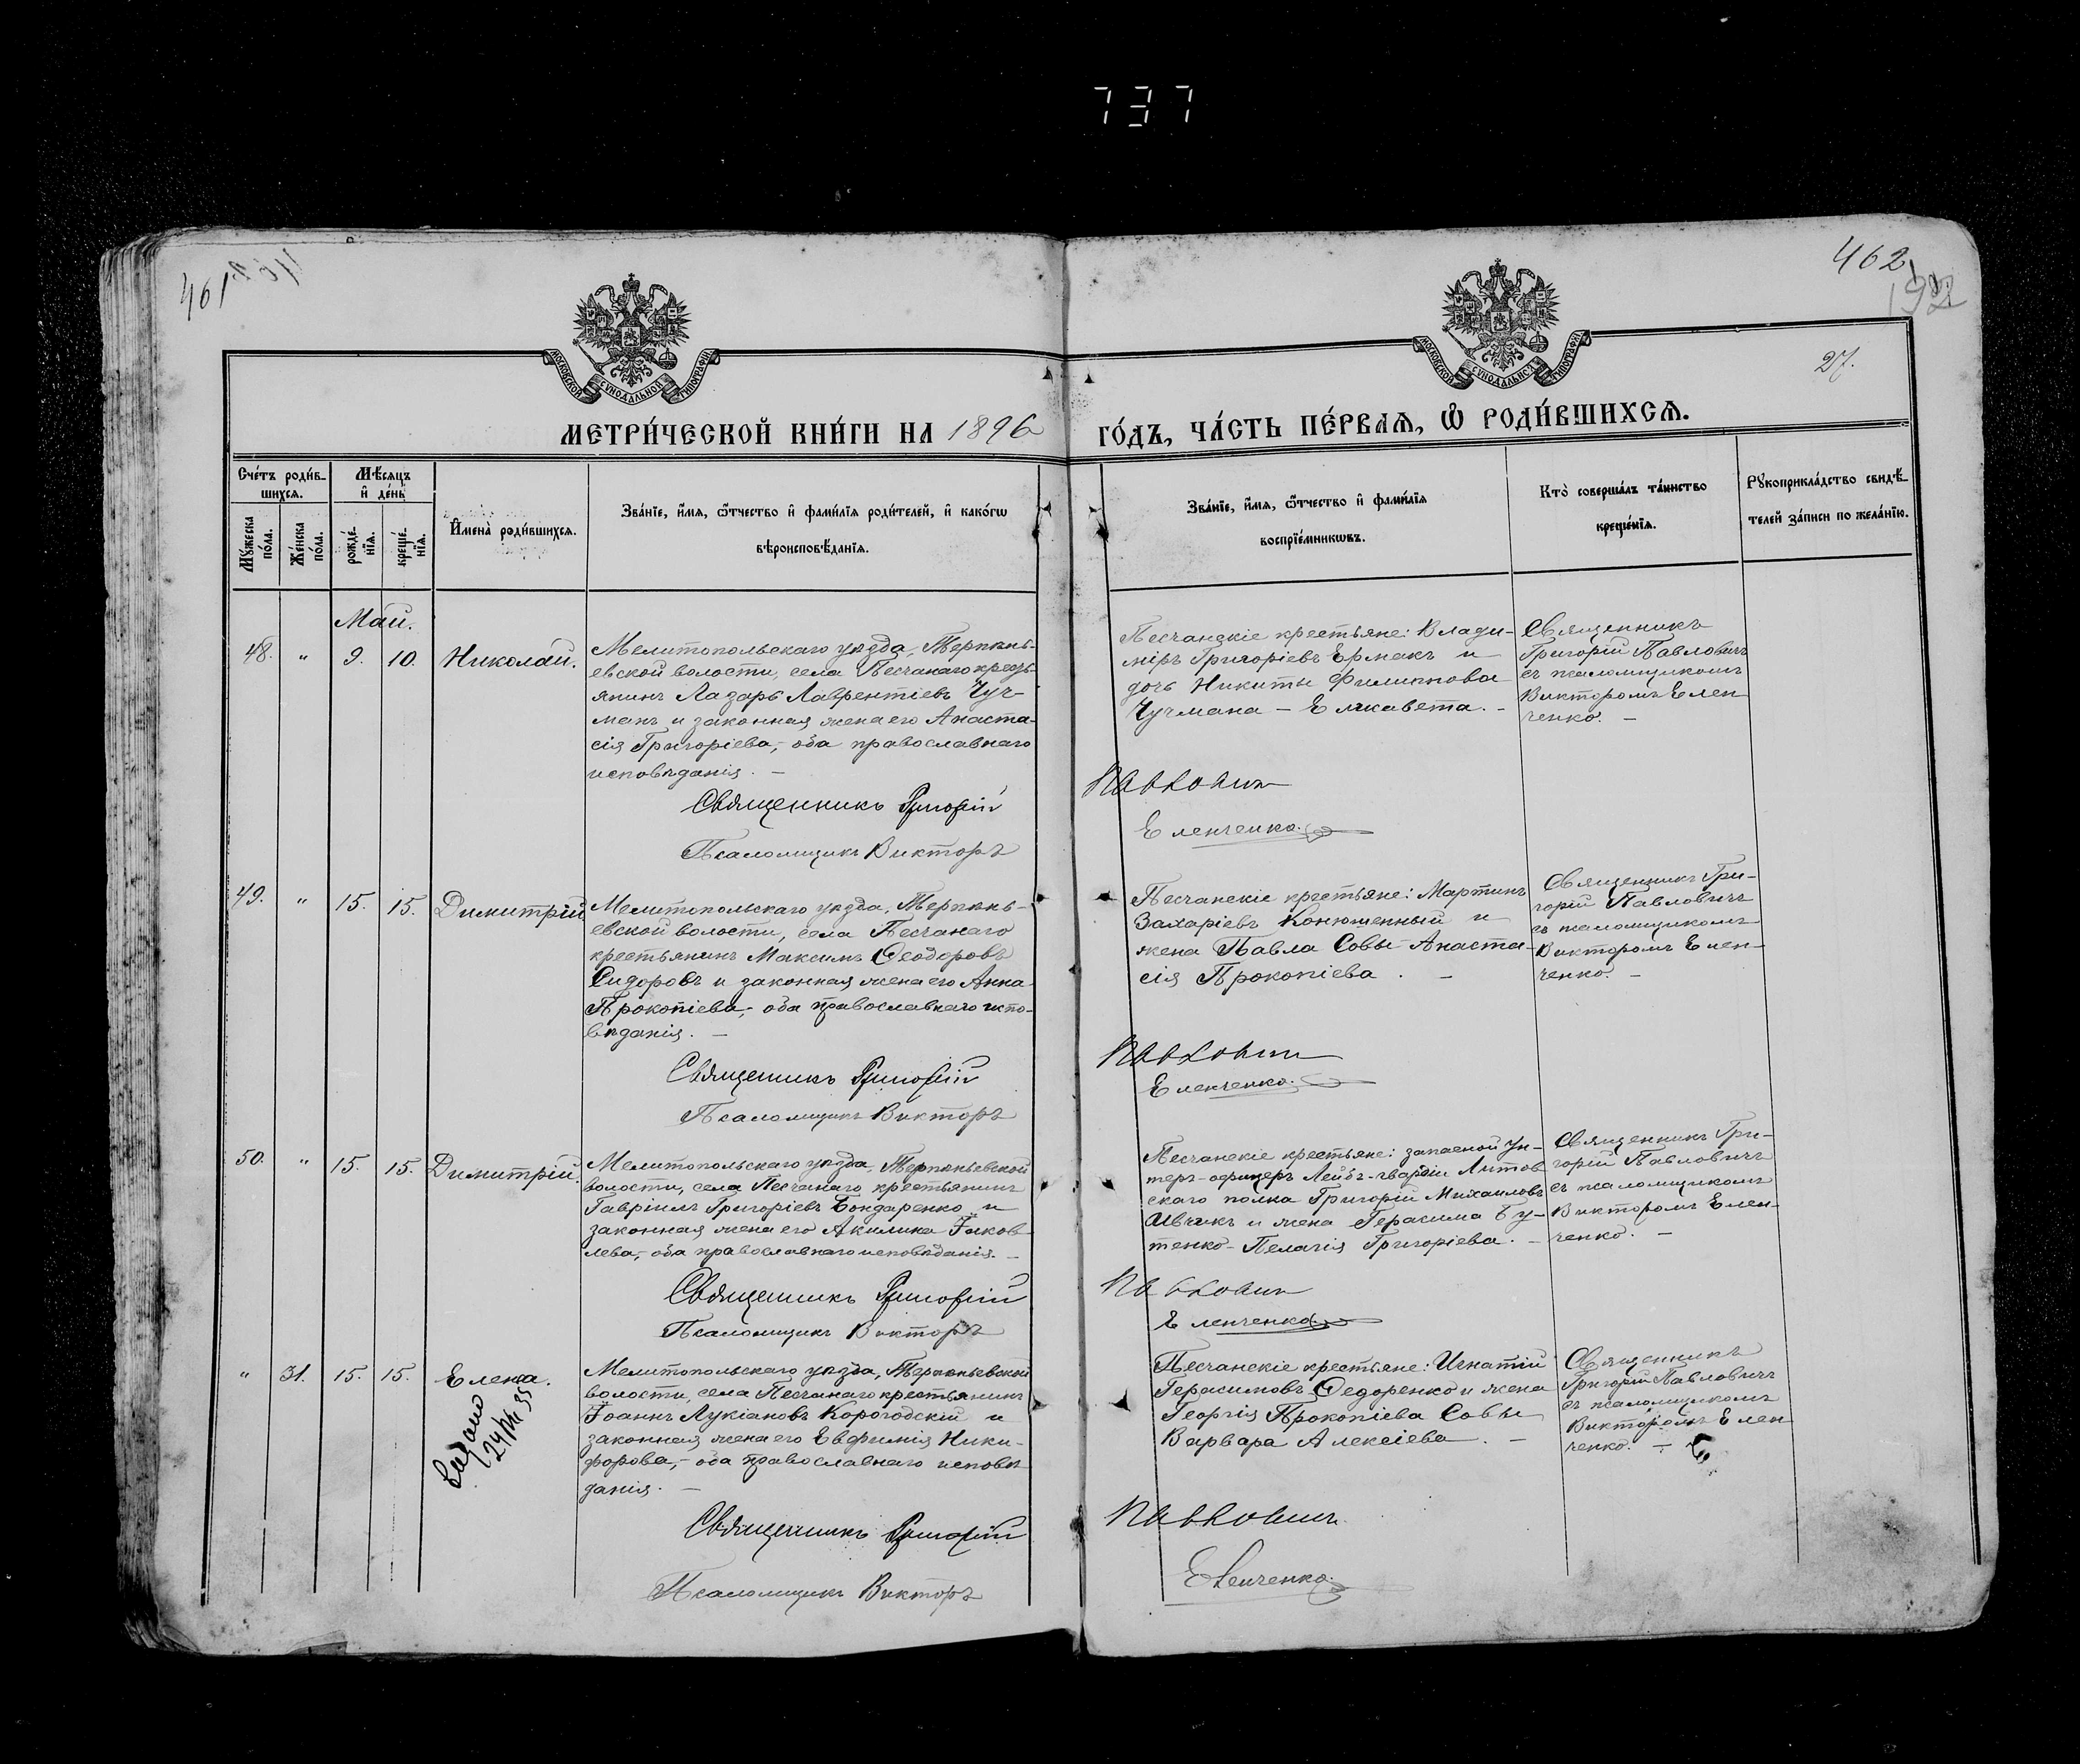 737
461
462
192
27.
МОСКОВСКОЙ СѴНОДАЛЬНОЙ ТИПОГРАФІИ
МОСКОВСКОЙ СѴНОДАЛЬНОЙ ТИПОГРАФІИ
МЕТРИ́ЧЕСКОЙ КНИ́ГИ НА 1896 ГО́ДЪ, ЧА́СТЬ ПЕ́РВАѦ, Ѽ РОДИ́ВШИХСѦ.
Сче́тъ роди́в-
шихсѧ.
Мѣ́сѧцъ
и҆ де́нь
Мꙋ́жеска
по́ла.
Же́нска
по́ла.
рожде́-
нїѧ.
креще́-
нїѧ.
И҆мена̀ роди́вшихсѧ.
Зва́нїе, и҆́мѧ, ѻ҆́тчество и҆ фами́лїѧ роди́телей, и҆ како́гѡ
вѣроисповѣ́данїѧ.
Зва́нїе, и҆́мѧ, ѻ҆́тчество и҆ фами́лїѧ
воспрїе́мникѡвъ.
Кто̀ соверша́лъ та́инство
креще́нїѧ.
Рꙋкоприкла́дство свидѣ́-
телей за́писи по жела́нїю.
Май.
48. " 9. 10. Николай.
Мелитопольскаго уѣзда, Терпѣнь-
евской волости, села Песчанаго кресть-
янинъ Лазарь Лаврентіевъ Чуч-
манъ и законная жена его Анаста-
сія Григоріева,- оба православнаго
исповѣданія. -
Священникъ Григорій
Псаломщикъ Викторъ
Песчанскіе крестьяне: Влади-
міръ Григоріевъ Ермакъ и
дочь Никиты Филиппова
Чучмана - Елисавета. -
Павловичъ
Еленченко.
Священникъ
Григорій Павловичъ
съ псаломщикомъ
Викторомъ Елен
ченко. -
49. " 15. 15. Димитрій
Мелитопольскаго уѣзда, Терпѣнь-
евской волости, села Песчанаго
крестьянинъ Максимъ Ѳеодоровъ
Сидоровъ и законная жена его Анна
Прокопіева,- оба православнаго испо-
вѣданія. -
Священникъ Григорій
Псаломщикъ Викторъ
Песчанскіе крестьяне: Мартинъ
Захаріевъ Конюшенный и
жена Павла Совы Анаста-
сія Прокопіева. -
Павловичъ
Еленченко.
Священникъ Гри-
горій Павловичъ
съ псаломщикомъ
Викторомъ Елен-
ченко. -
50. " 15. 15. Димитрій.
Мелитопольскаго уѣзда, Терпѣньевской
волости, села Песчанаго крестьянинъ
Гавріилъ Григоріевъ Бондаренко и
законная жена его Акилина Іаков
лева,- оба православнаго исповѣданія. -
Священникъ Григорій
Псаломщикъ Викторъ
Песчанскіе крестьяне: запасной Ун-
теръ-офицеръ Лейбъ-гвардіи Литов
скаго полка Григорій Михаиловъ
Ивчикъ и жена Герасима Бу-
тенко - Пелагія Григоріева. -
Павловичъ
Еленченко.
Священникъ Гри-
горій Павловичъ
съ псаломщикомъ
Викторомъ Елен-
ченко. -
" 31. 15. 15. Елена.
Выдано
Мелитопольскаго уѣзда, Терпѣньевской
волости, села Песчанаго крестьянинъ
Іоаннъ Лукіановъ Корогодскій и
законная жена его Евфимія Ники-
форова,- оба православнаго исповѣ
данія. -
Священникъ Григорій
Псаломщикъ Викторъ
Песчанскіе крестьяне: Игнатій
Герасимовъ Ѳедоренко и жена
Георгія Прокопіева Совы
Варвара Алексіева. -
Павловичъ
Еленченко.
Священникъ
Григорій Павловичъ
съ псаломщикомъ
Викторомъ Елен
ченко. -